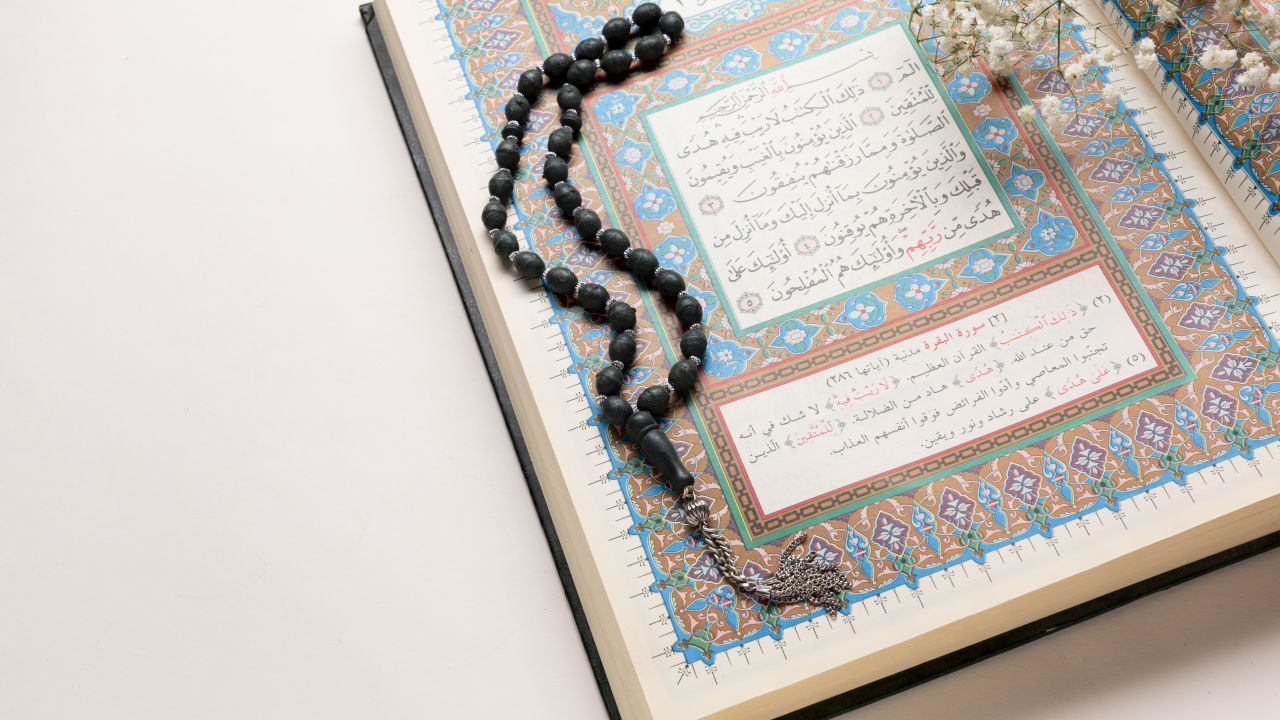 بِسْمِ ٱللَّهِ ٱلرَّحْمَٰنِ ٱلرَّحِيمِ
الٓمٓ ١ ذَٰلِكَ ٱلْكِتَٰبُ لَا رَيْبَ فِيهِ هُدًى
لِّلْمُتَّقِينَ ٢ ٱلَّذِينَ يُؤْمِنُونَ بِٱلْغَيْبِ وَيُقِيمُونَ
ٱلصَّلَوٰةَ وَمِمَّا رَزَقْنَٰهُمْ يُنفِقُونَ ٣
وَٱلَّذِينَ يُؤْمِنُونَ بِمَآ أُنزِلَ إِلَيْكَ وَمَآ أُنزِلَ مِن
قَبْلِكَ وَبِٱلْءَاخِرَةِ هُمْ يُوقِنُونَ ٤ أُو۟لَٰٓئِكَ عَلَىٰ
هُدًى مِّن رَّبِّهِمْ وَأُو۟لَٰٓئِكَ هُمُ ٱلْمُفْلِحُونَ ٥
[٢] سورة البقرة مدنية (آياتها ٢٨٦)
(٢) ﴿ذَٰلِكَ ٱلْكِتَٰبُ﴾ القرآن العظيم. ﴿لَا رَيْبَ فِيهِ﴾ لا شك في أنه
حق من عند الله. ﴿هُدًى﴾ هاد من الضلالة. ﴿لِّلْمُتَّقِينَ﴾ الذين
تجنبوا المعاصي وأدّوا الفرائض فوَقَوا أنفسهم العذاب.
(٥) ﴿عَلَىٰ هُدًى﴾ على رشاد ونور ويقين.